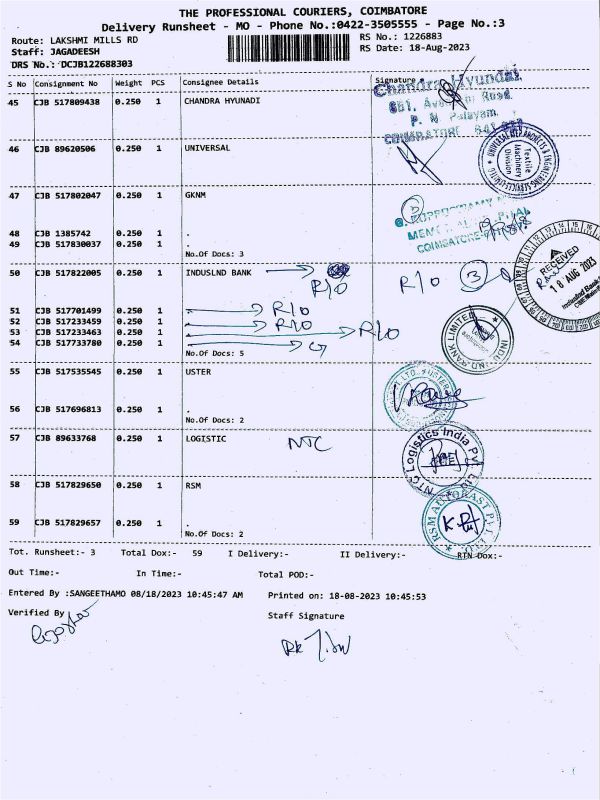 THE PROFESSIONAL COURIERS, COIMBATORE
Delivery Runsheet - MO - Phone No.:0422-3505555 - Page No.:3
Route: LAKSHMI MILLS RD
RS No.: 1226883
Staff: JAGADEESH
RS Date: 18-Aug-2023
DRS No.: DCJB122688303
S No Consignment No Weight PCS Consignee Details Signature
45 CJB 517809438 0.250 1 CHANDRA HYUNADI
Chandra Hyundai
Road,
P. N. Palayam,
COIMBATORE
46 CJB 89620506 0.250 1 UNIVERSAL
Textile Machinery Division
47 CJB 517802047 0.250 1 GKNM
COIMBATORE
48 CJB 1385742 0.250 1 .
49 CJB 517830037 0.250 1 .
No.Of Docs: 3
RECEIVED
18 AUG 2023
50 CJB 517822005 0.250 1 INDUSLND BANK
R/O R/O 3
51 CJB 517701499 0.250 1 R/O
52 CJB 517233459 0.250 1 R/O
53 CJB 517233463 0.250 1 R/O
54 CJB 517733780 0.250 1
No.Of Docs: 5
INDUSIND BANK LIMITED
55 CJB 517535545 0.250 1 USTER
56 CJB 517696813 0.250 1 .
No.Of Docs: 2
57 CJB 89633768 0.250 1 LOGISTIC NTC
NTC Logistics India Pvt. Ltd
58 CJB 517829650 0.250 1 RSM
59 CJB 517829657 0.250 1 .
No.Of Docs: 2
RSM AUTOKAST PVT. LTD.
Tot. Runsheet:- 3 Total Dox:- 59 I Delivery:- II Delivery:- RTN Dox:-
Out Time:- In Time:- Total POD:-
Entered By :SANGEETHAMO 08/18/2023 10:45:47 AM Printed on: 18-08-2023 10:45:53
Verified By Staff Signature